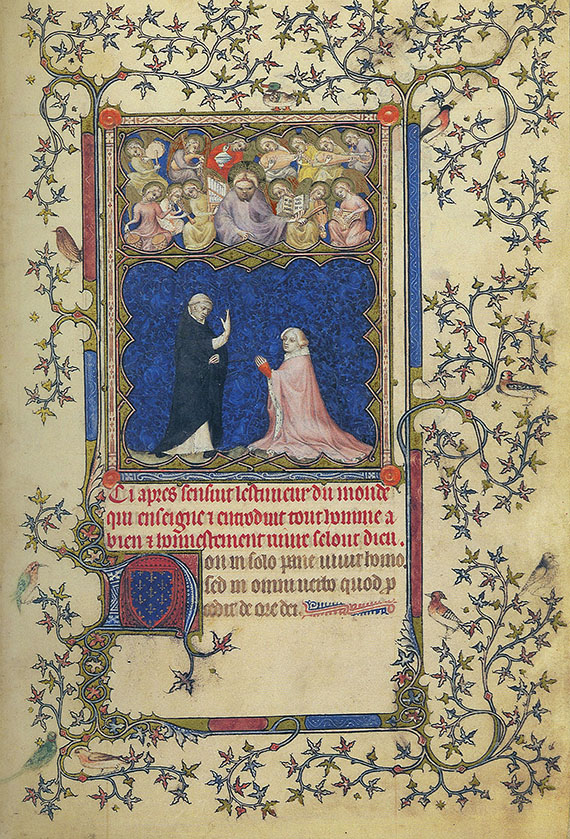 Ci apres sensuit lestimeur du monde
qui enseigne ⁊ entroduit tout homme a
bien ⁊ honnestement viure selonc dieu.
Non in solo pane uiuit homo
sed in omni uerbo quod p
cedit de ore dei